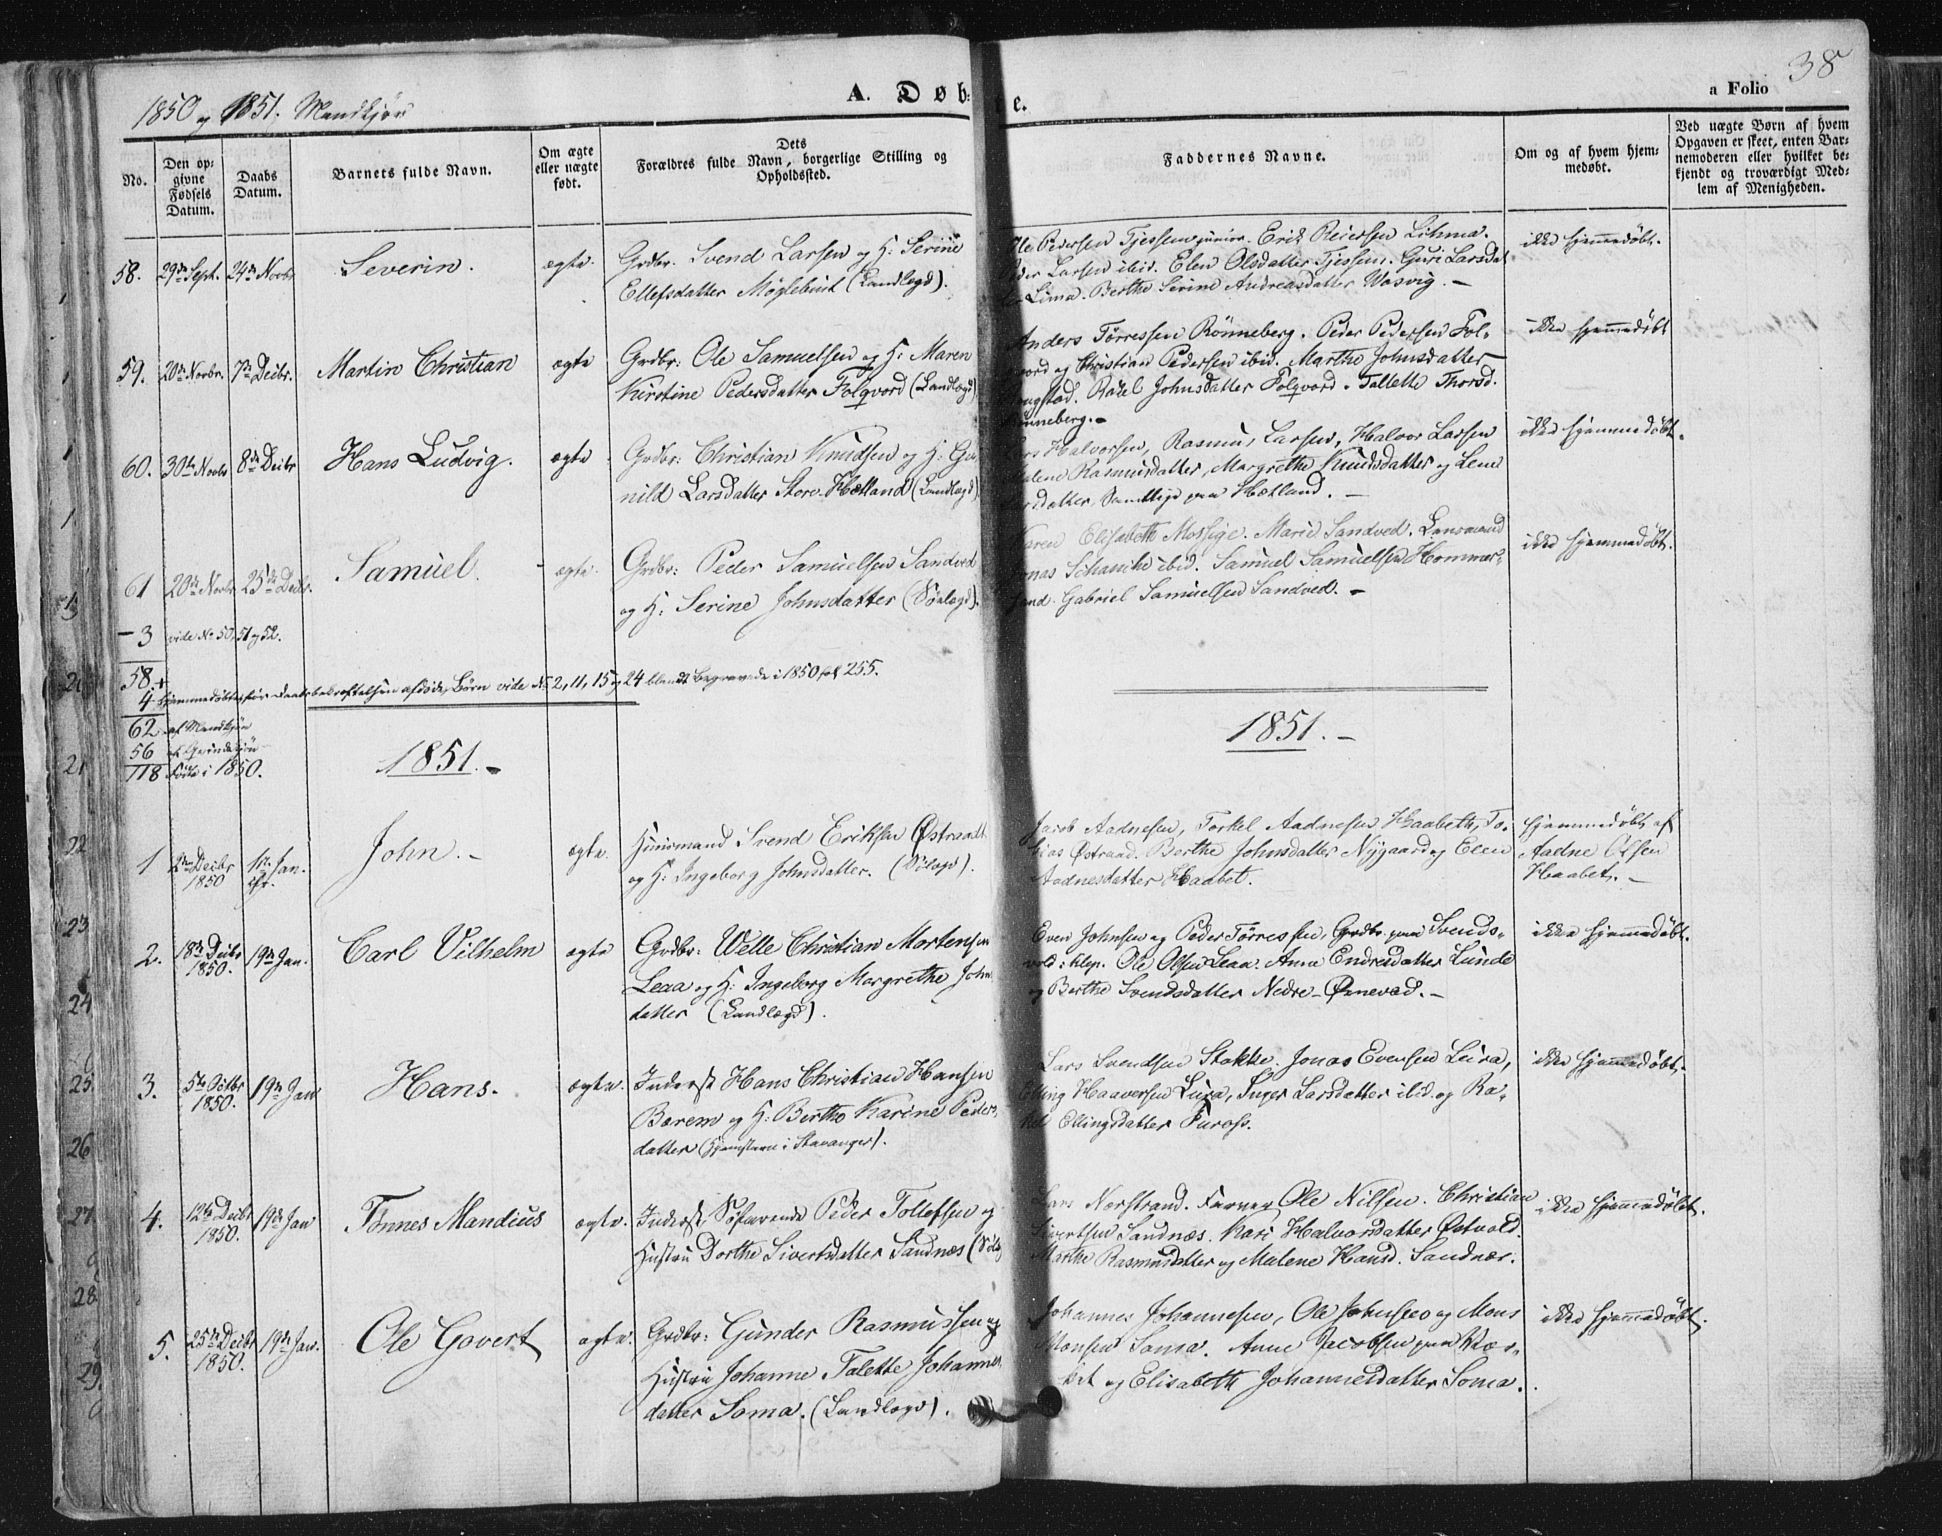 1850 og 1851. Mandkjøn
A. Døb-
te.
38
a Folio
No.
Den op-
givne
Fødsels
Datum.
Daabs
Datum.
Barnets fulde Navn.
Om ægte
eller uægte
født.
Dets
Forældres fulde Navn, borgerlige Stilling og
Opholdssted.
Faddernes Navne.
Om og af hvem hjem-
medøbt.
Ved uægte Børn af hvem
Opgaven er skeet, enten Bar-
nemoderen eller hvilket be-
kjendt og troværdigt Med-
lem af Menigheden.
58. 29de Sept. 24de Novbr Severin. ægte.
Grdbr. Svend Larsen og H: Serine
Ellefsdatter (Landlægd).
Ole Pedersen Tjessem junior. Erik Lihma.
Peder Larsen ibid. Elen Olsdatter Tjessem. Guri Larsdat-
ter Lima. Berthe Serine Andreasdatter Wasvig. –
ikke hjemmedøbt.
59. 20de Novbr. 7de Decbr. Martin Christian ægte
Grdbr: Ole Samuelsen og H: Maren
Kirstine Pedersdatter Folqvord (Landlægd)
Anders Tørressen Rønneberg. Peder Pedersen Fol-
qvord og Christian Pedersen ibid. Marthe Johnsdatter
Rakel Johnsdatter Folqvord. Tallette Thorsd.
Rønneberg. –
ikke hjemmedøbt
60. 30te Novbr 8de Decbr Hans Ludvig. ægte
Grdbr: Christian Knudsen og H: Gu-
nild Larsdatter Store-Hætland (Landlægd).
Lars Halvorsen, Rasmus Larsen, Halvor Larsen
Malene Rasmusdatter, Margrethe Knudsdatter og Lene
Larsdatter, Samtlige paa Hætland. –
ikke hjemmedøbt.
61 20de Novbr. 25de Decbr. Samuel. ægte.
Grdbr: Peder Samuelsen Sandved
og H: Serine Johnsdatter (Sølægd).
Karen Elisabeth Mossige. Marie Sandved. Lensmand
Jonas Schanche ibid. Samuel Samuelsen Hommer-
sand. Gabriel Samuelsen Sandved. –
ikke hjemmedøbt.
– 3 vide No 50, 51 og 52.
58. +
4 hjemmedøbte, før Daabsbekræftelsen afdøde Børn vide No 2, 11, 15 og 24 blandt Begravede i 1850 fol 255.
62 af Mandkjøn
56 af Qvindekjøn
118 Fødte i 1850.
1851. –
1851. –
1 2den Decbr 1850 1ste Jan. John. – ægte.
Huusmand Svend Eriksen Østraadt
og H: Ingeborg Johnsdatter. (Sølægd).
Jacob Aadnesen, Torkel Aadnesen Haabeth, To-
bias Østraad. Berthe Johnsdatter Nygaard og Elen
Aadnesdatter Haabet.
hjemmedøbt af
Aadne Olsen
Haabet. –
2. 18de Decbr 1850. 19de Jan. Carl Vilhelm ægte
Grdbr: Welle Christian Mortensen
Leaa og H: Ingeborg Margrethe John
datter (Landlægd).
Even Johnsen og Peder Tørressen, Grdbr. paa Svends-
vold i Klep. Ole Olsen Leaa. Anna Endresdatter Lunde
og Berthe Svendsdatter Nedre-Ørnevad. –
ikke hjemmedøbt.
3. 5te Octbr 1850. 19de Jan Hans. ægte.
Inderst Hans Christian Hansen
Barem og H: Berthe Karine Peders
datter (hjemstavn i Stavanger).
Lars Svendsen Stokke. Jonas Evensen Lura,
Elling Haaversen Lura, Inger Larsdatter ibid. og Ra-
kel Ellingsdatter Furass.
ikke hjemmedøbt.
4. 12te Decbr 1850. 19de Jan Tønnes Mandius ægte.
Inderst, Søfarende Peder Tollefsen og
Hustru Dorthe Sivertsdatter Sandnes (Søl
Lars Norstrand. Farver Ole Nilsen. Christian
Sivertsen Sandnæs. Kari Halvorsdatter Østvold.
Marthe Rasmusdatter og Malene Hansd. Sandnæs.
ikke hjemmedøbt.
5. 25de Decbr 1850. 19de Jan. Ole Govert ægte.
Grdbr: Gunder Rasmussen og
Hustru Johanne Talette Johannes
datter Soma. (Landlægd).
Johannes Johannesen, Ole Johnsen og Mons
Monsen Soma. Anne Jacobsen paa
og Elisabeth Johannesdatter Soma.
ikke hjemmedøbt.